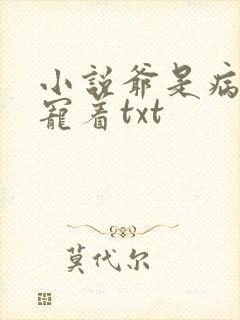 小說爺是病
寵着txt
莫代尔